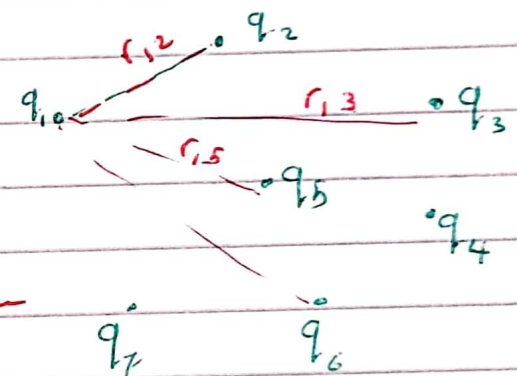 r12 q2
q1 r13 q3
r15 q5
q4
q7 q6